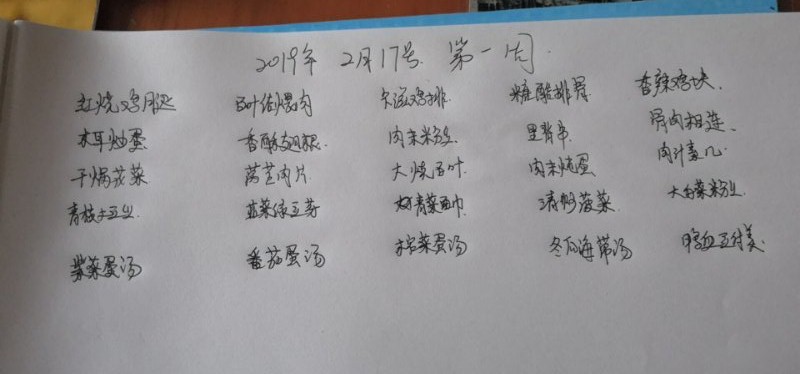 2019年 2月17号 第一周
红烧鸡腿 百叶结煨肉 卡滋鸡排 糖醋排骨 香辣鸡块
木耳炒蛋 香酥翅根 肉末粉丝 里脊串 骨肉相连
干锅花菜 莴苣肉片 大烧百叶 肉末炖蛋 肉汁
青椒土豆丝 韭菜绿豆芽 炒青菜 清炒菠菜 大白菜粉丝
紫菜蛋汤 番茄蛋汤 菜蛋汤 冬瓜海带汤 鸭血豆付羹